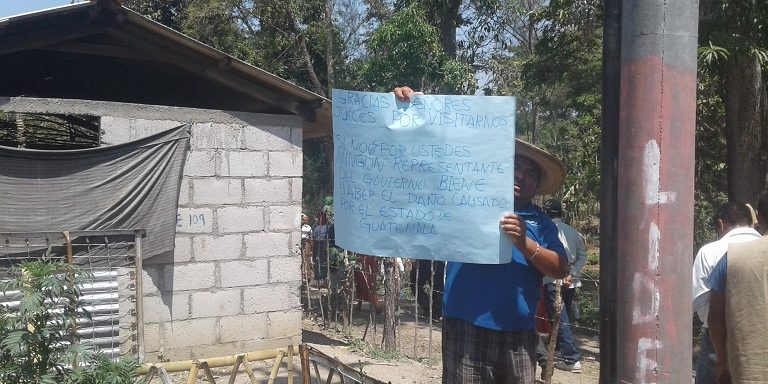 GRACIAS SENORES
JUECES POR VISITARNOS
SI NO ES POR USTEDES
NINGUN REPRESENTANTE
DEL GOVIERNO BIENE
HABER EL DAÑO CAUSADO
POR EL ESTADO DE
GUATEMALA
E 109